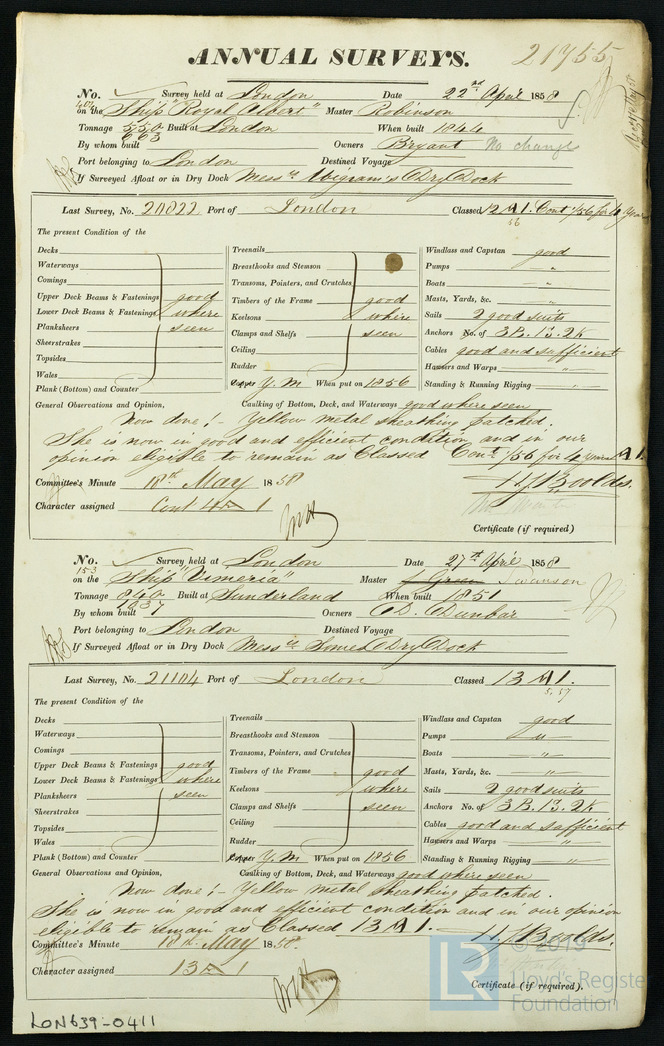 ANNUAL SURVEYS.
21755
No. Survey held at London Date 22nd April 1858
404
on the Ship "Royal Albert" Master Robinson
Tonnage 550 Built at London When built 1844
663
By whom built Owners Bryant No change
Port belonging to London Destined Voyage
If Surveyed Afloat or in Dry Dock Messrs Wigram's Dry Dock
Last Survey, No. 20822 Port of London Classed 12 A1. Contd 1/56 for 4 years
56
The present Condition of the
Decks
Waterways
Comings
Upper Deck Beams & Fastenings good
Lower Deck Beams & Fastenings where
Planksheers seen
Sheerstrakes
Topsides
Wales
Plank (Bottom) and Counter
Treenails
Breasthooks and Stemson
Transoms, Pointers, and Crutches
Timbers of the Frame good
Keelsons where
Clamps and Shelfs seen
Ceiling
Rudder
Copper Y.M When put on 1856
Windlass and Capstan good
Pumps "
Boats "
Masts, Yards, &c. "
Sails 2 good suits
Anchors No. of 3B. 1S. 2K
Cables good and sufficient
Hawsers and Warps "
Standing & Running Rigging "
General Observations and Opinion, Caulking of Bottom, Deck, and Waterways good where seen
Now done :- Yellow metal sheathing patched.
She is now in good and efficient condition and in our
opinion eligible to remain as Classed Contd 1/56 for 4 years A1.
Committee's Minute 18th May 1858
Character assigned Cont 4 A 1
Certificate (if required)
No. Survey held at London Date 27th April 1858
153
on the Ship "Vimeria" Master J Green Swanson
Tonnage 940 Built at Sunderland When built 1851
1037
By whom built Owners D. Dunbar
Port belonging to London Destined Voyage
If Surveyed Afloat or in Dry Dock Messrs Somes Dry Dock
Last Survey, No. 21104 Port of London Classed 13 A1.
5.57
The present Condition of the
Decks
Waterways
Comings
Upper Deck Beams & Fastenings good
Lower Deck Beams & Fastenings where
Planksheers seen
Sheerstrakes
Topsides
Wales
Plank (Bottom) and Counter
Treenails
Breasthooks and Stemson
Transoms, Pointers, and Crutches
Timbers of the Frame good
Keelsons where
Clamps and Shelfs seen
Ceiling
Rudder
Copper Y.M When put on 1856
Windlass and Capstan good
Pumps "
Boats "
Masts, Yards, &c. "
Sails 2 good suits
Anchors No. of 3B. 1S. 2K
Cables good and sufficient
Hawsers and Warps "
Standing & Running Rigging "
General Observations and Opinion, Caulking of Bottom, Deck, and Waterways good where seen
Now done :- Yellow metal sheathing patched.
She is now in good and efficient condition and in our opinion
eligible to remain as Classed 13 A1.
Committee's Minute 18th May 1858.
Character assigned 13 A 1
Certificate (if required).
LR © 2019
Lloyd's Register
Foundation
LON639-0411